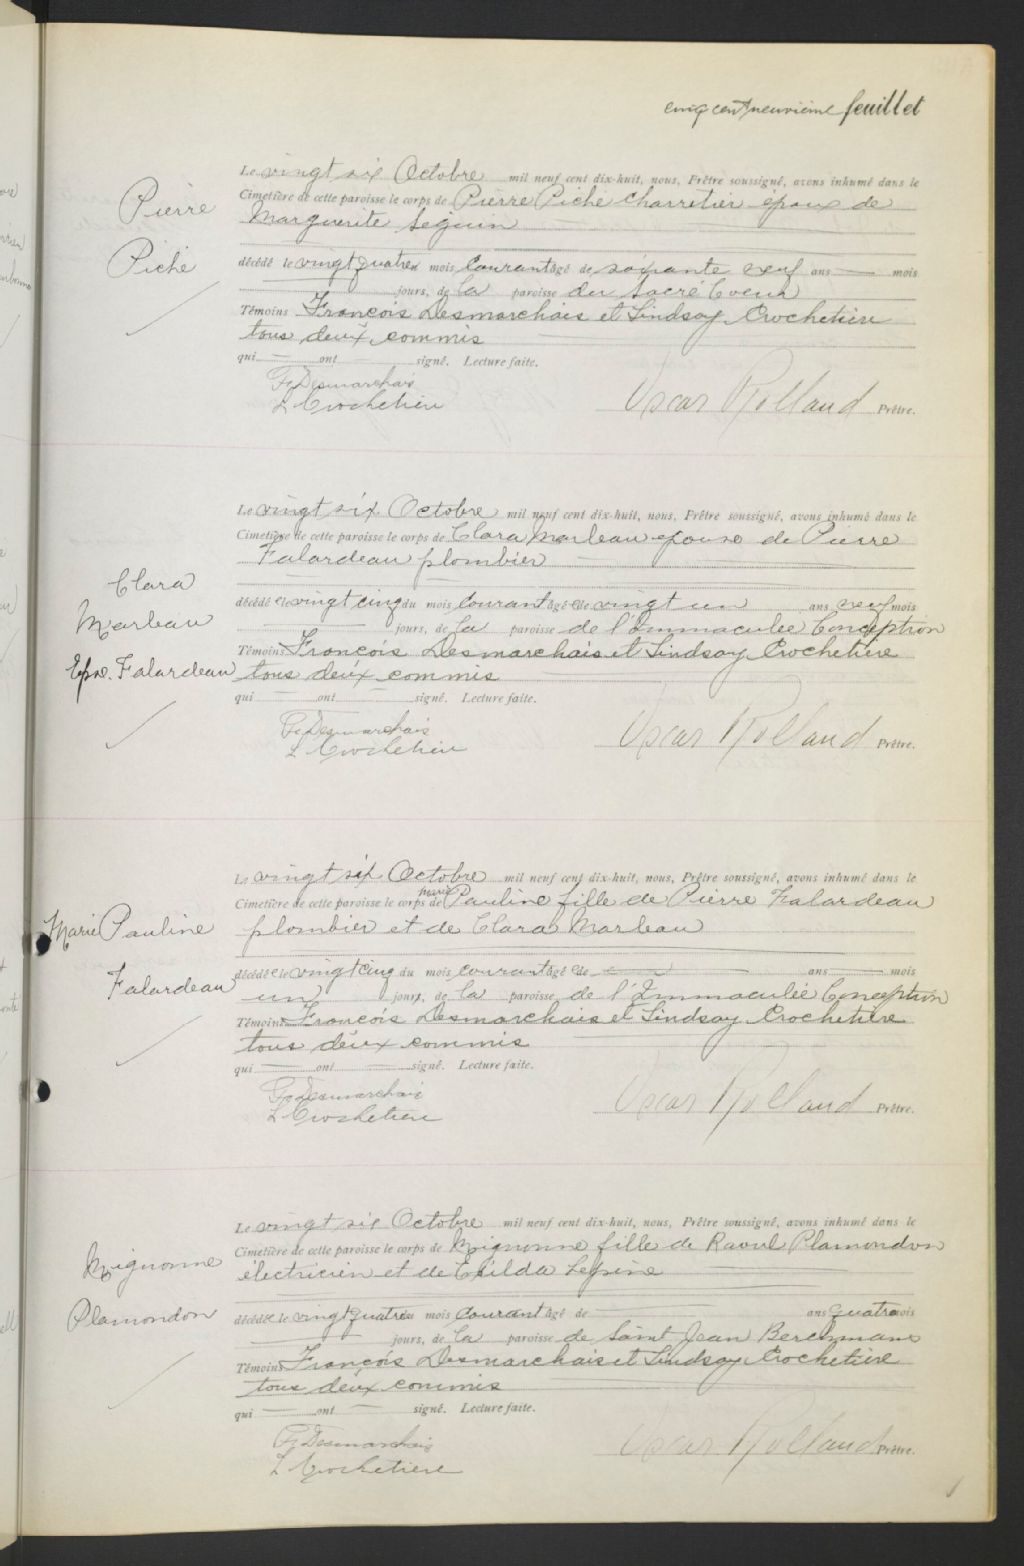 cinq cent neuvième feuillet
Le vingt six Octobre mil neuf cent dix-huit, nous, Prêtre soussigné, avons inhumé dans le
Pierre
Cimetière de cette paroisse le corps de Pierre Piché charretier époux de
Marguerite Séguin
Piché
décédé le vingt quatre du mois courant âgé de soixante neuf ans mois
jours, de la paroisse du Sacré Coeur
Témoins François Desmarchais et Lindsay Crochetière
tous deux commis
qui ont signé. Lecture faite.
F. Desmarchais
L Crochetière
Oscar Rolland Prêtre.
Le vingt six Octobre mil neuf cent dix-huit, nous, Prêtre soussigné, avons inhumé dans le
Cimetière de cette paroisse le corps de Clara Marleau epouse de Pierre
Falardeau plombier
Clara
Marleau
Epse. Falardeau
décédée le vingt cinq du mois courant âgée de vingt un ans neuf mois
jours, de la paroisse de l'Immaculée Conception
Témoins François Desmarchais et Lindsay Crochetière
tous deux commis
qui ont signé. Lecture faite.
F. Desmarchais
L Crochetière
Oscar Rolland Prêtre.
Le vingt six Octobre mil neuf cent dix-huit, nous, Prêtre soussigné, avons inhumé dans le
Cimetière de cette paroisse le corps de Marie Pauline fille de Pierre Falardeau
Marie Pauline
plombier et de Clara Marleau
Falardeau
décédée le vingt cinq du mois courant âgée de ans mois
un jour, de la paroisse de l'Immaculée Conception
Témoins François Desmarchais et Lindsay Crochetière
tous deux commis
qui ont signé. Lecture faite.
F. Desmarchais
L Crochetière
Oscar Rolland Prêtre.
Le vingt six Octobre mil neuf cent dix-huit, nous, Prêtre soussigné, avons inhumé dans le
Cimetière de cette paroisse le corps de Mignonne fille de Raoul Plamondon
Mignonne
électricien et de Exilda Lepine
Plamondon
décédée le vingt quatre du mois courant âgé de ans quatre mois
jours, de la paroisse de Saint Jean Berchmans
Témoins François Desmarchais et Lindsay Crochetière
tous deux commis
qui ont signé. Lecture faite.
F. Desmarchais
L Crochetiere
Oscar Rolland Prêtre.